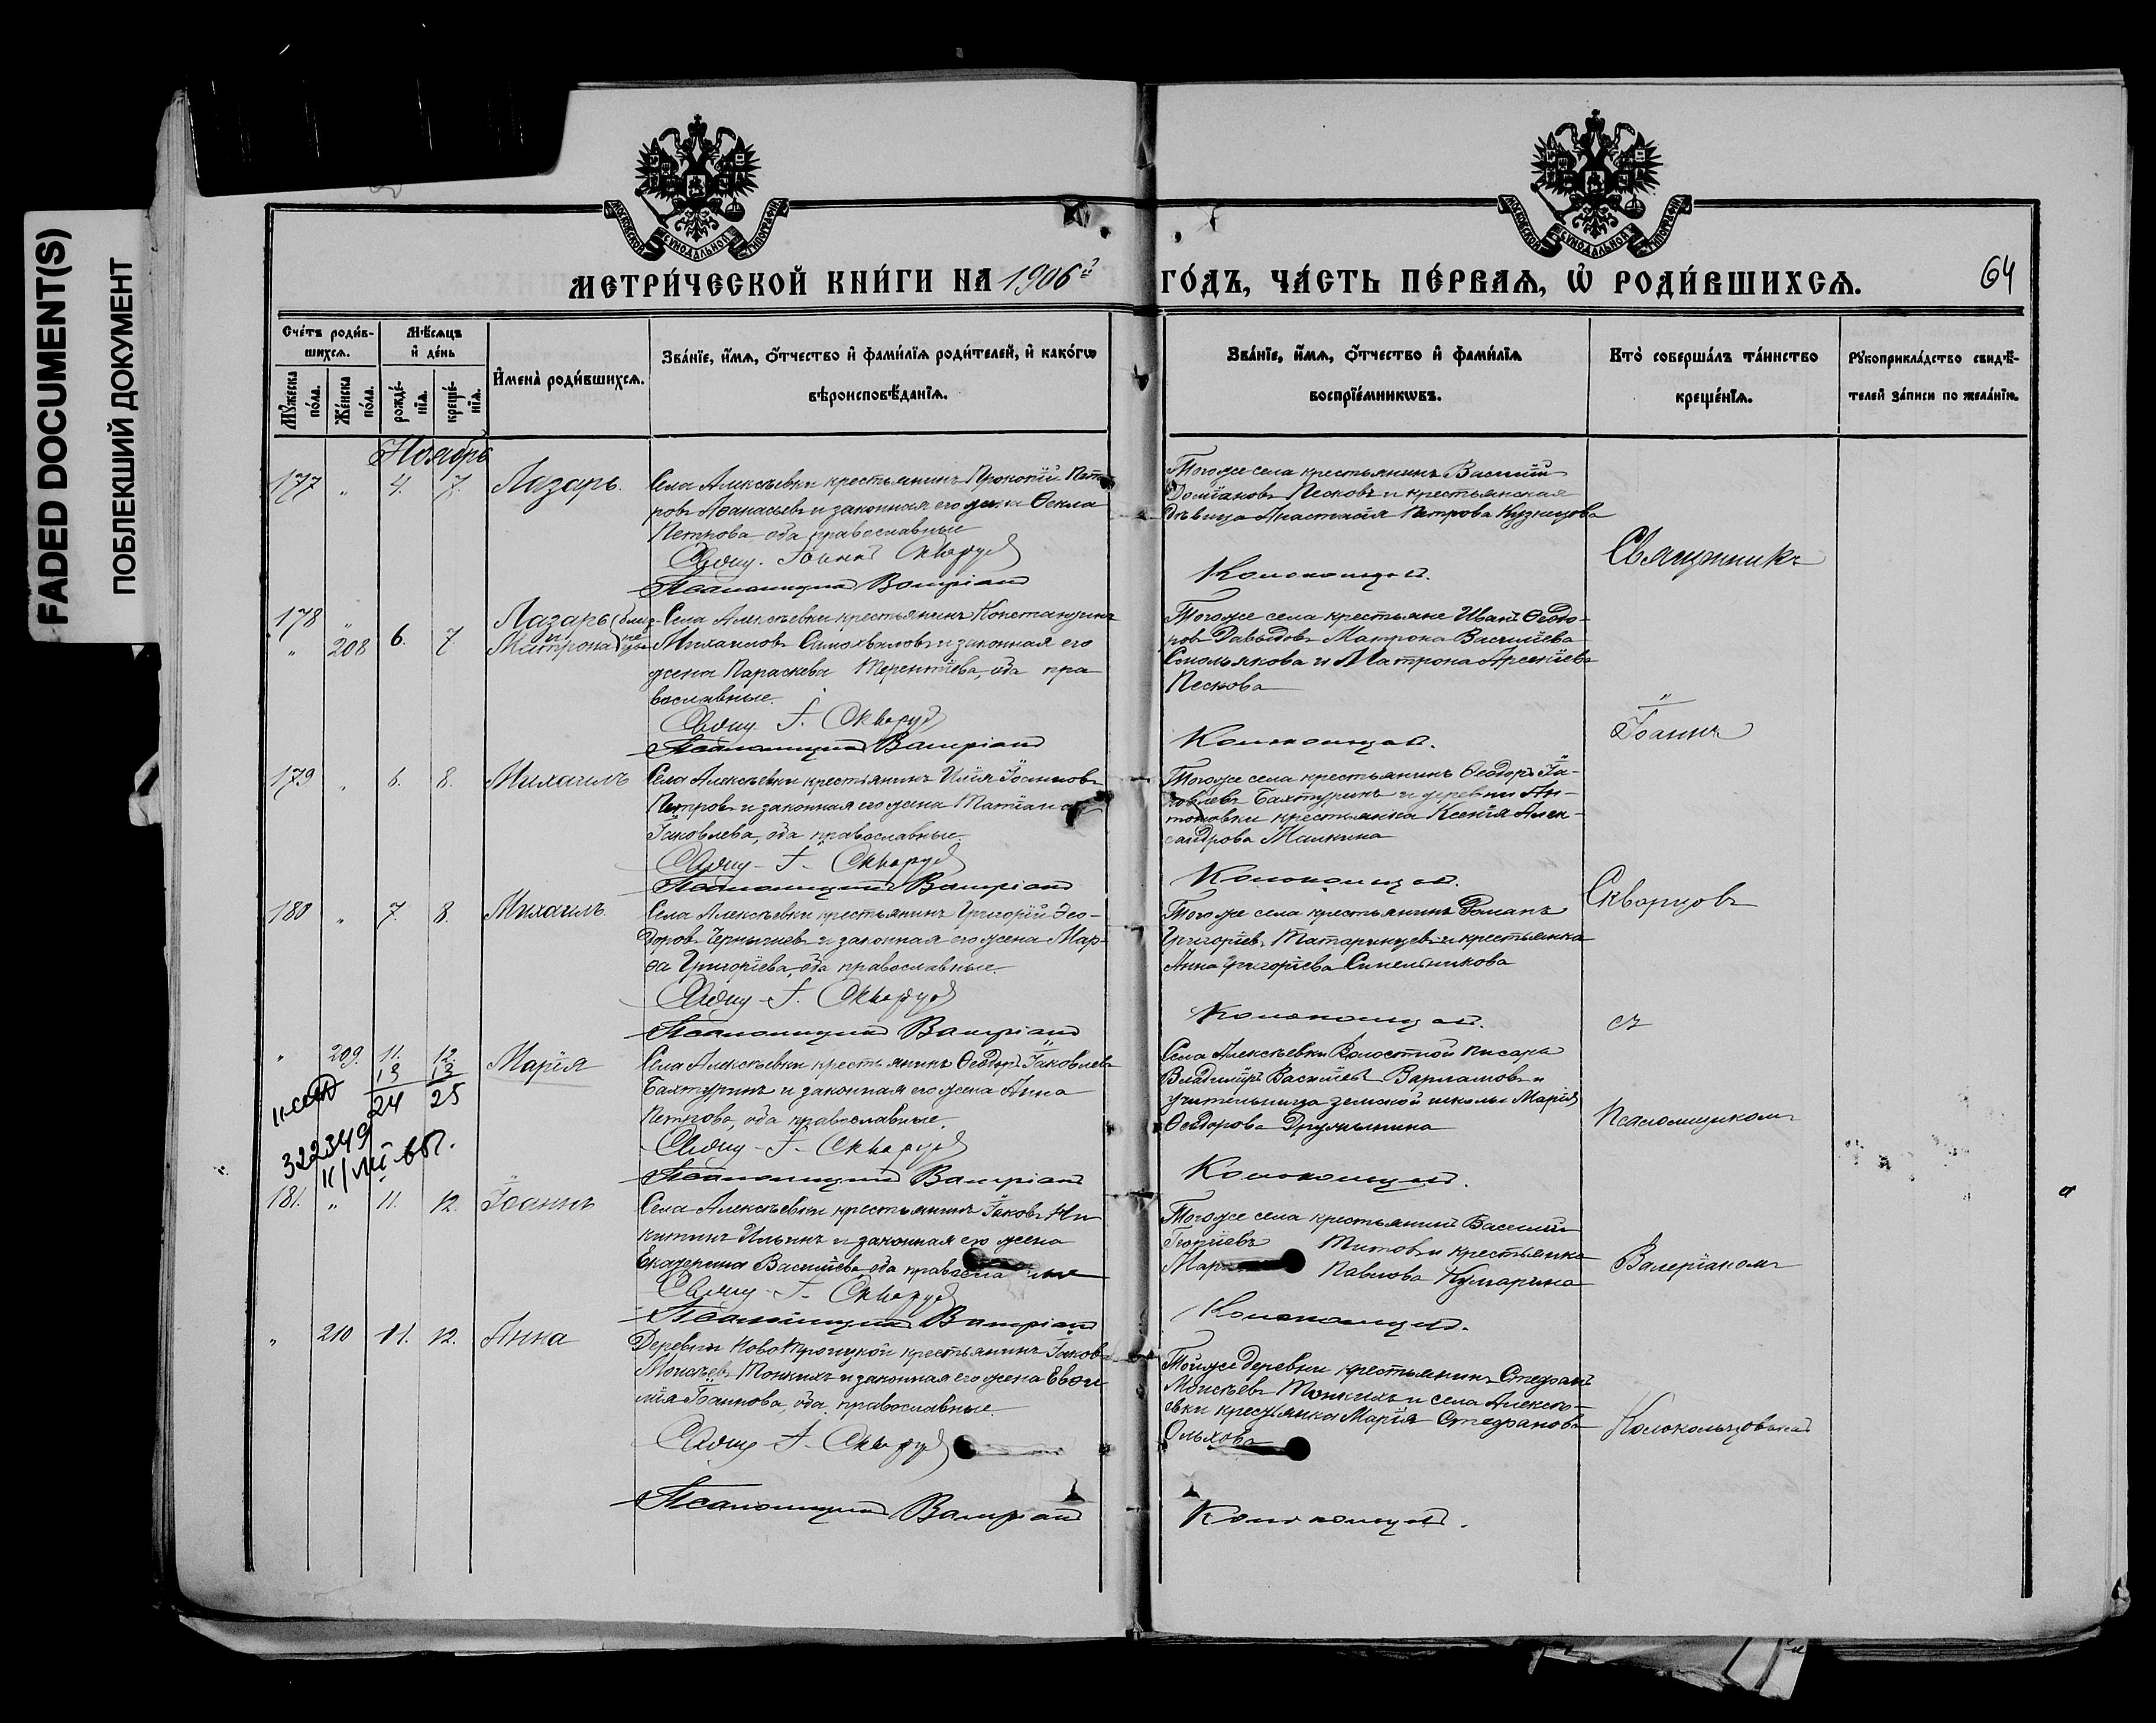 FADED DOCUMENT(S)
ПОБЛЕКШИЙ ДОКУМЕНТ
МОСКОВСКОЙ СѴНОДАЛЬНОЙ ТИПОГРАФІИ
МОСКОВСКОЙ СѴНОДАЛЬНОЙ ТИПОГРАФІИ
МЕТРИ́ЧЕСКОЙ КНИ́ГИ НА 1906й ГО́ДЪ, ЧА́СТЬ ПЕ́РВАѦ, Ѡ҆ РОДИ́ВШИХСѦ. 64
Сче́тъ роди́в-
шихсѧ.
Мꙋ́жеска по́ла.
Же́нска по́ла.
Мѣ́сѧцъ
и҆ де́нь
рожде́-
нїѧ.
креще́-
нїѧ.
И҆мена̀ роди́вшихсѧ.
Зва́нїе, и҆́мѧ, ѻ҆́тчество и҆ фами́лїѧ роди́телей, и҆ како́гѡ
вѣроисповѣ́данїѧ.
Зва́нїе, и҆́мѧ, ѻ҆́тчество и҆ фами́лїѧ
воспрїе́мникѡвъ.
Кто̀ соверша́лъ та́инство
креще́нїѧ.
Рꙋкоприкла́дство свидѣ́-
телей за́писи по жела́нїю.
Ноябрь
177 " 4. 7. Лазарь.
Села Алексѣевки крестьянинъ Прокопій Пет
ровъ Аѳанасьевъ и законная его жена Ѳекла
Петрова оба православные
Свящ. Іоаннъ Скворцовъ
Псаломщикъ Валеріанъ
Тогоже села крестьянинъ Василій
Доміановъ Песковъ и крестьянская
дѣвица Анастасія Петрова Кузнецова
Колокольцовъ.
Священникъ
178 " Лазарь (близ-
и
" 208 6. 7. Матрона
Села Алексѣевки крестьянинъ Константинъ
Михаиловъ Самохваловъ и законная его
жена Параскева Терентіева, оба пра
вославные.
Свящ. І. Скворцовъ
Псаломщикъ Валеріанъ
Тогоже села крестьяне Иванъ Ѳеодо-
ровъ Давыдовъ Матрона Василіева
Смольякова и Матрона Арсеніева
Пескова
Колокольцовъ.
Іоаннъ
179 " 6. 8. Михаилъ
Села Алексѣевки крестьянинъ Илія Іоанновъ
Петровъ и законная его жена Татіана
Іаковлева, оба православные.
Свящ. І. Скворцовъ
Псаломщикъ Валеріанъ
Тогоже села крестьянинъ Ѳеодоръ Іа-
ковлевъ Бахтуринъ и деревни Ан-
тоновки крестьянка Ксенія Алек-
сандрова Малкина
Колокольцовъ.
Скворцовъ
180 " 7. 8. Михаилъ
Села Алексѣевки крестьянинъ Григорій Ѳео-
доровъ Чернышевъ и законная его жена Мар-
ѳа Григоріева, оба православные.
Свящ. І. Скворцовъ
Псаломщикъ Валеріанъ
Тогоже села крестьянинъ Романъ
Григоріевъ Татаринцевъ и крестьянка
Анна Григоріева Синельникова
Колокольцовъ.
съ
" 209. 11. 12. Марія
13 13
24 25
322349
Села Алексѣевки крестьянинъ Ѳеодоръ Іаковлевъ
Бахтуринъ и законная его жена Анна
Петрова, оба православные.
Свящ. І. Скворцовъ
Псаломщикъ Валеріанъ
Села Алексѣевки Волостной писарь
Владиміръ Василіевъ Варламовъ и
учительница земской школы Марія
Ѳеодорова Дружинина
Колокольцовъ.
Псаломщикомъ
181. " 11. 12. Іоаннъ
Села Алексѣевки крестьянинъ Іаковъ Ни
китинъ Ильинъ и законная его жена
Екатерина Василіева оба правосла
Свящ. І. Скворцовъ
Псаломщикъ Валеріанъ
Тогоже села крестьянинъ Василій
Георгіевъ Титовъ и крестьянка
Мар Павлова Кумарина
Колокольцовъ.
Валеріаномъ
" 210 11. 12. Анна
Деревни Ново Троицкой крестьянинъ Іаковъ
Моисѣевъ Тонкихъ и законная его жена Евѳи
мія Іоаннова, оба православные.
Свящ. І. Скворцовъ
Псаломщикъ Валеріанъ
Тойже деревни крестьянинъ Стефанъ
Моисѣевъ Тонкихъ и села Алексѣ-
евки крестьянка Марія Стефанова
Ольхова
Колокольцовъ.
Колокольцовымъ